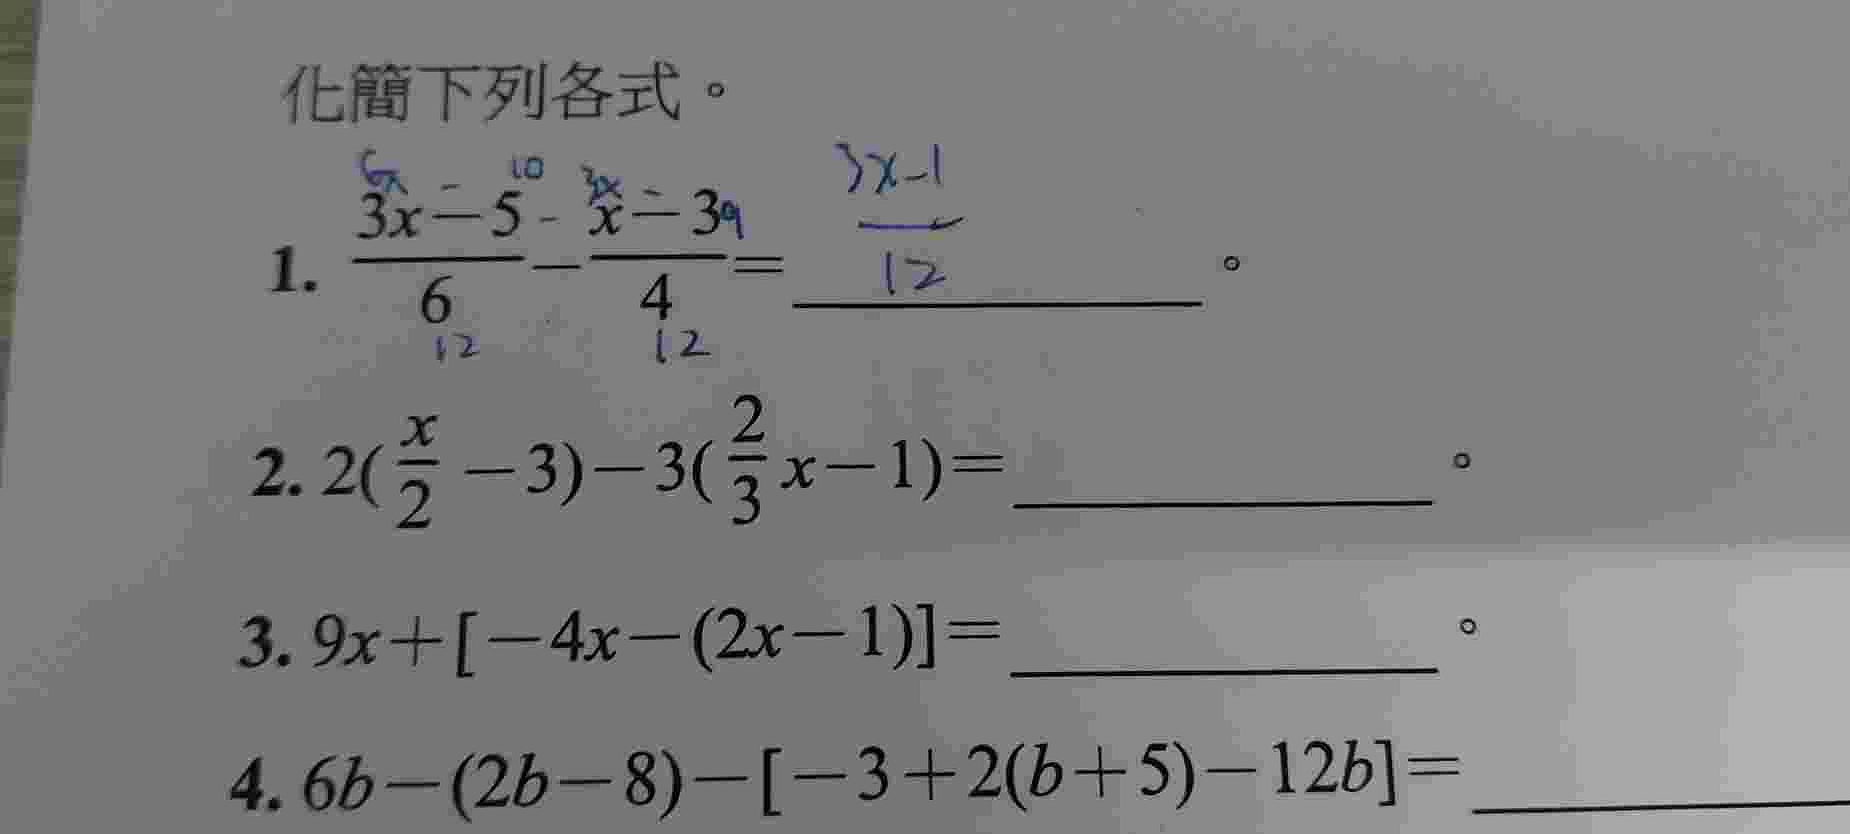 化簡下列各式。
6x - 10 3x - 9 3x-1
1. (3x-5)/6 - (x-3)/4 = ____________ 。
12 12 12
2. 2(x/2 -3)-3(2/3 x-1)=____________ 。
3. 9x+[-4x-(2x-1)]=____________ 。
4. 6b-(2b-8)-[-3+2(b+5)-12b]=____________